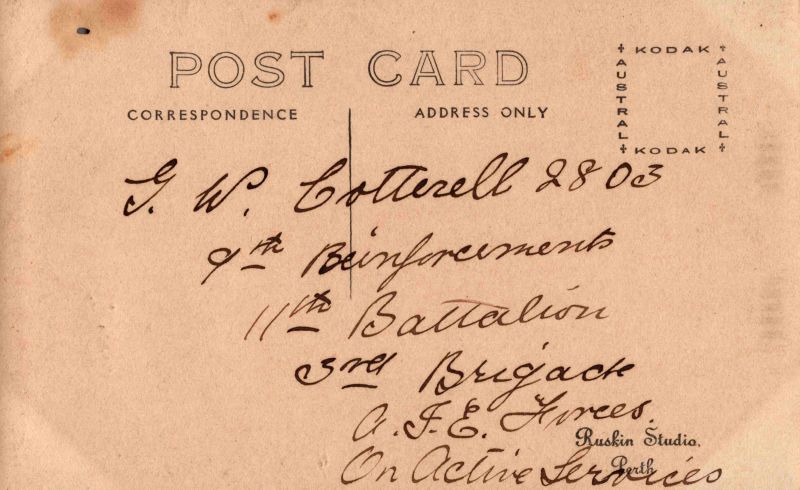 POST CARD
CORRESPONDENCE
ADDRESS ONLY
KODAK
AUSTRAL
AUSTRAL
KODAK
G. W. Cotterell 2803
9th Reinforcements
11th Battalion
3rd Brigade
A.I.E. Forces.
On Active Services
Ruskin Studio.
Perth